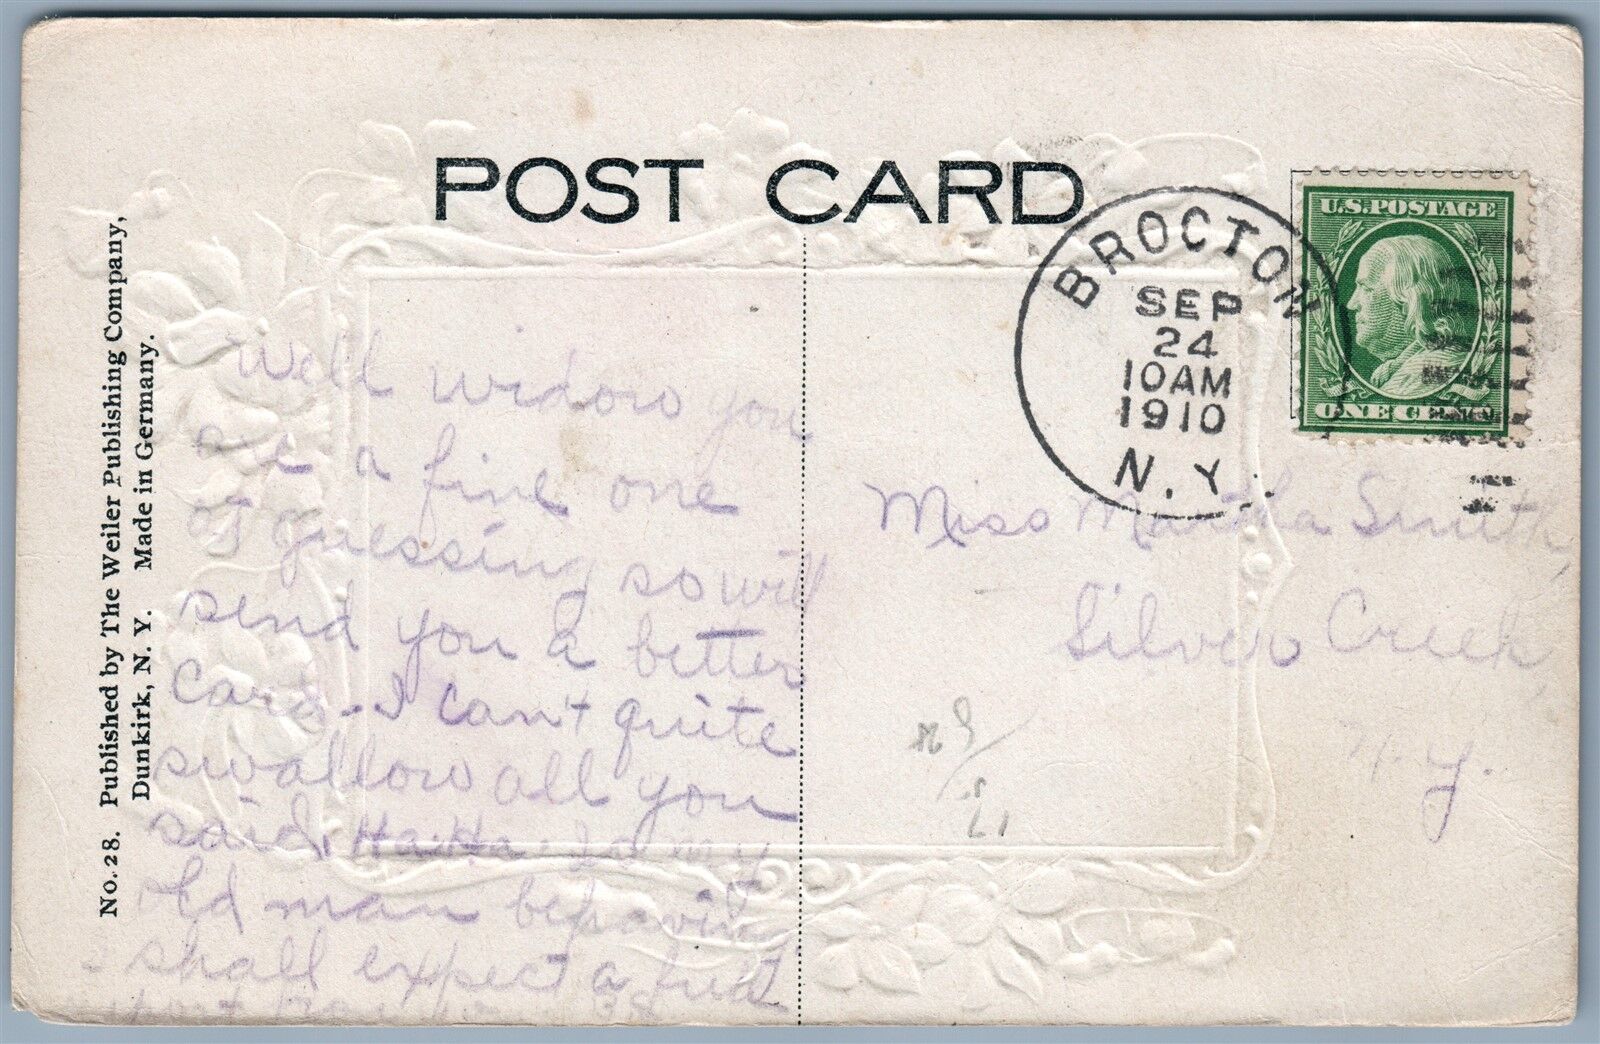 POST CARD
BROCTON
SEP
24
10AM
1910
N.Y.
U.S.POSTAGE
ONE CENT
No. 28. Published by The Weiler Publishing Company,
Dunkirk, N. Y. Made in Germany.
Well widow you
are a fine one
at guessing so will
send you a better
card. I can't quite
swallow all you
said, Ha. Ha. Is my
old man behavin
shall expect a
from you
Miss Martha Smith,
Silver Creek,
N. Y.